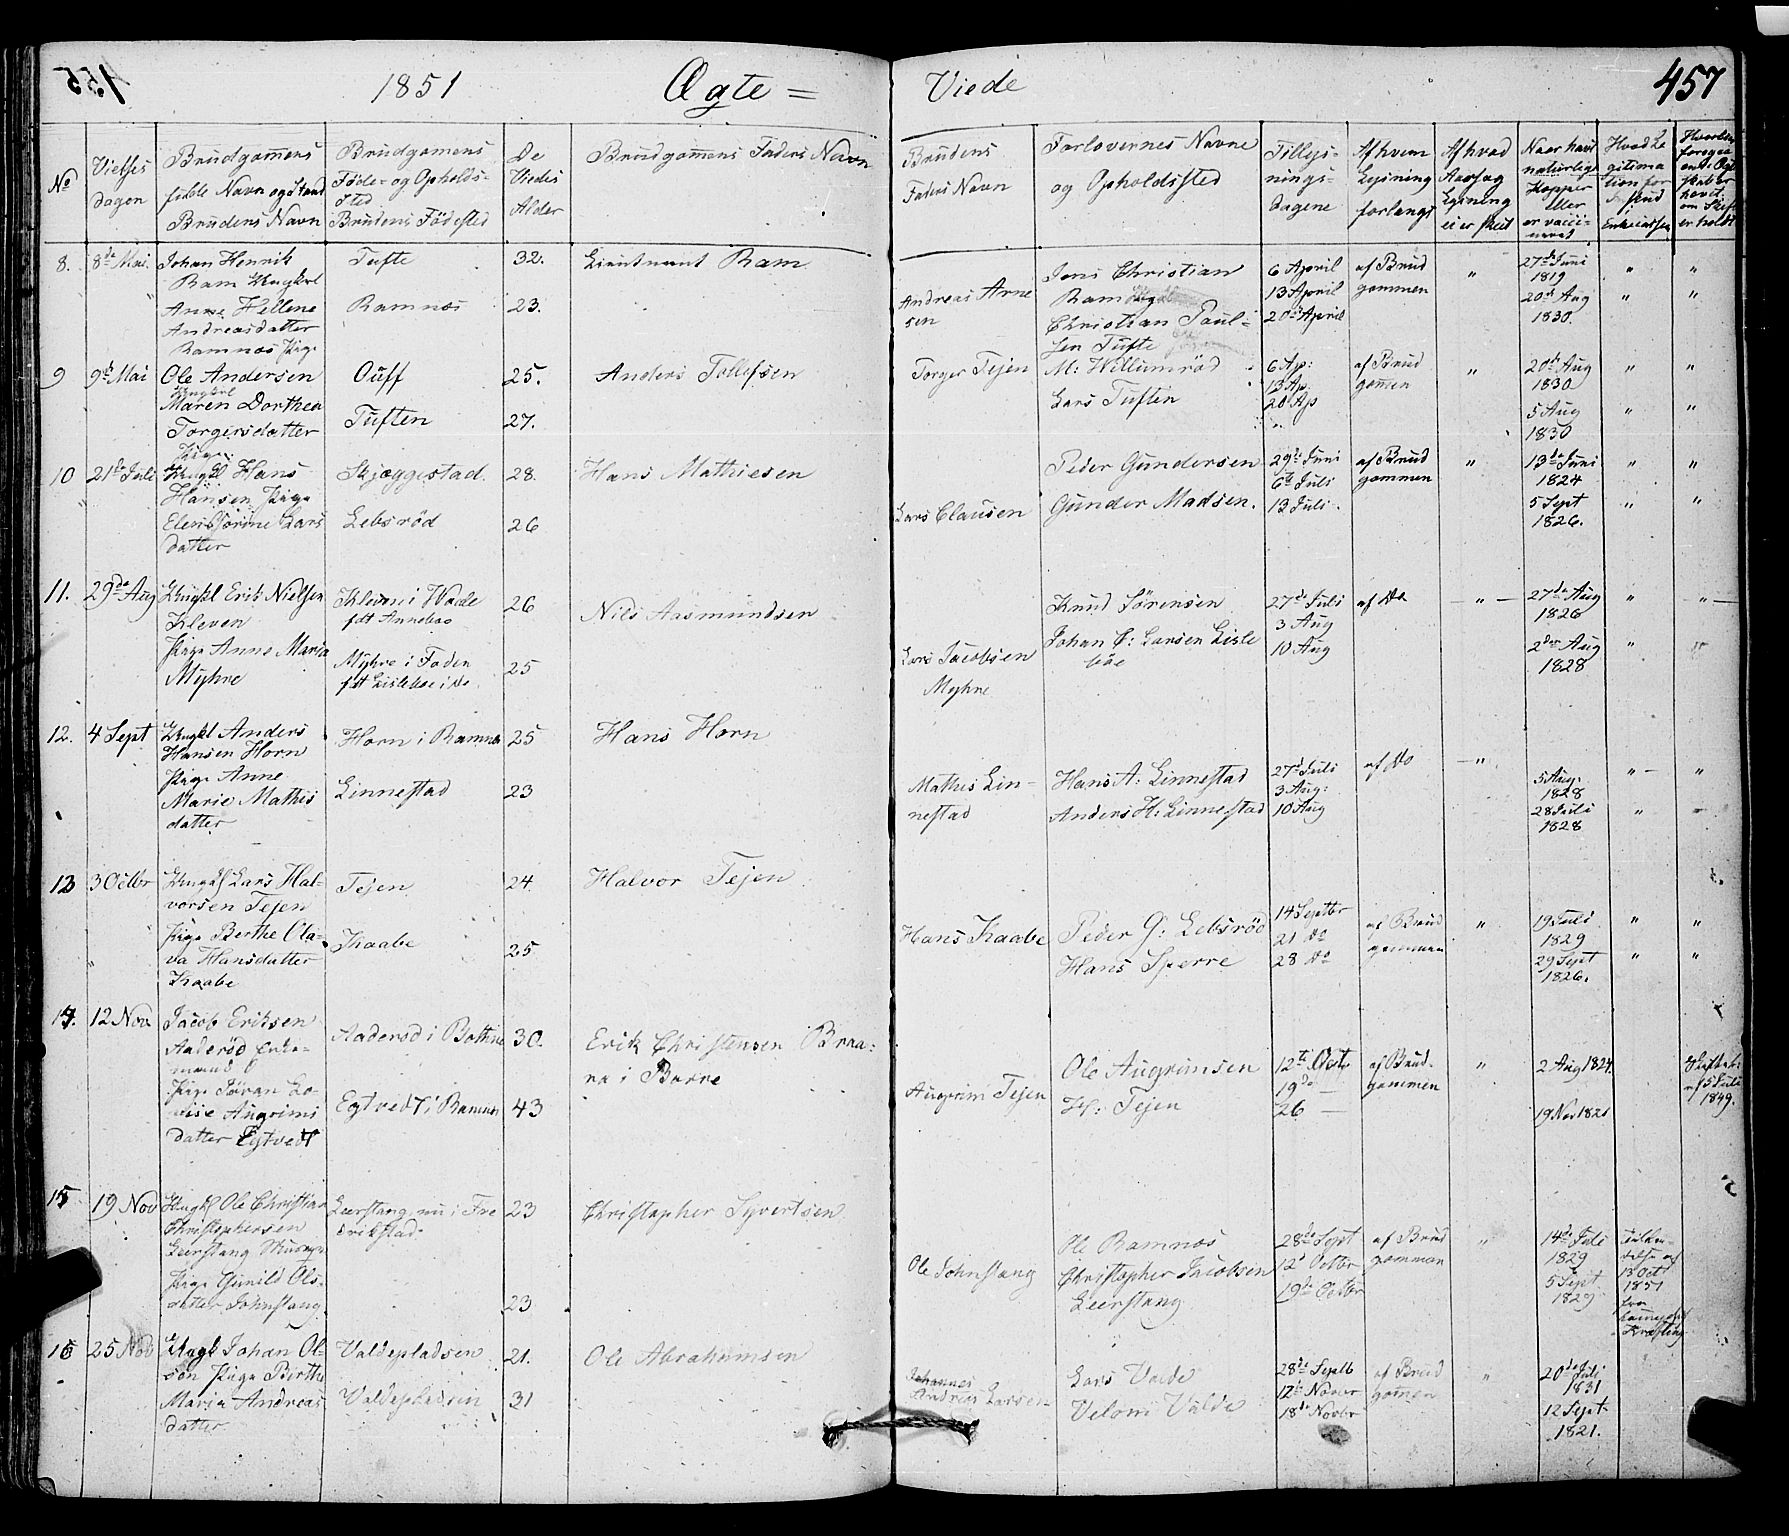 455 1851 Ægte =
Viede 457
No
Vielses
dagen
Brudgomens
fulde Navn og Stand
Brudens Navn
Brudgomens
Føde- og Opholds-
Sted
Brudens Födested
De
Viedes
Alder
Brudgomens Faders Navn
Brudens
Faders Navn
Forlovernes Navne
og Opholdssted
Tillys-
nings-
dagene
Af hvem
Lysning
forlangt
Af hvad
Aarsag
Lysning
ei er skeet
Naar havt
naturlige
Kopper
eller
er vacci-
neret
Hvad Le
gitima
tion for
Enkeiadsen
Hvorledes
foregaa
ende Ægte
skaber
hævet
om Skifte
er holdt
8. 8de Mai. Johan Henrik
Ram Ungkarl
Anne Hellene
Andreasdatter
Ramnæs Pige
Tufte
Ramnæs
32.
23.
Lieutnant Ram
Andreas Arne
sen
Jens Christian
Ram
Christian Paul-
sen Tufte
6 April
13 April
20de April
af Brud
gommen
"
27de Juni
1819
20de Aug
1830.
" "
" "
9 9de Mai Ole Andersen
Ungkrl
Maren Dorthea
Torgersdatter
Pige
Ouff
Tuften
25.
27.
Anders Tollefsen
Torger Tejen
M: Willumröd
Lars Tuften
6 Ap:
13 Ap.
20 Ap
af Brud
gomen
"
20de Aug
1830
5 Aug
1830
" "
" "
10 21de Juli Ungkl Hans
Hansen Pige
Elen Sörine Lars
datter
Skjæggestad.
Lebsröd
28.
26
Hans Mathiesen
Lars Clausen
Peder Gundersen
Gunder Madsen.
29de Juni
6te Juli
13 Juli.
af Brud
gommen
"
13de Juni
1824
5 Sept
1826.
" "
" "
11. 29de Aug Ungkl Erik Nielsen
Kleven
Pige Anne Maria
Myhre
Kleven i Waale
fdt Annebao
Myhre i Foden
fdt Lislebøe i do.
26
25
Nils Aasmundsen
Lars Jacobsen
Myhre
Knud Sörensen
Johan C: Larsen Lisle
böe
27de Juli
3 Aug
10 Aug
af Do
"
27de Aug
1826
2der Aug
1828
" "
" "
12. 4 Sept Ungkl Anders
Hansen Horn
Pige Anne
Marie Mathis
datter
Horn i Ramnæs
Linnestad
25
23
Hans Horn
Mathis Lin-
nestad
Hans A: Linnestad
Anders H: Linnestad
27de Juli
3 Aug:
10 Aug
af Do
"
5 Aug.
1828
28 Juli
1828
" "
" "
13 3 Octbr Ungkl Lars Hal-
vorsen Tejen
Pige Berthe Ola-
va Hansdatter
Kaabe
Tejen
Kaabe
24.
25.
Halvor Tejen
Hans Kaabe
Peder G: Lebsröd
Hans Sperre
14 Septbr
21 do
28 do
af Brud
gomman
"
19 Juli
1829
29 Sept
1826.
" "
" "
14. 12 Nov. Jacob Eriksen
Aaderöd Enke-
mand
Pige Søran Lo-
vise Augrims
datter Egtvedt
Aaderød i Bothne
Egtvedt i Ramnæs
30.
43
Erik Christensen Braa-
na i Borre
Augrim Tejen
Ole Augrimsen
H: Tejen
12te Octr
19de —
26 —
af Brud-
gommen
"
2 Aug 1824.
19 Nov 1821
Skifte
af 5 Juli
1849.
15 19 Nov Ungkl Ole Christian
Christophersen
Leerstang
Pige Gunild Ols-
datter Johnstang
Leerstang, nu i Fre
drikstad.
23
23
Christopher Syvertsen
Ole Johnstang
Ole Ramnæs
Christopher Jacobsen
Leerstang
28de Sept
12te Octbr
19de Octbr
af Brud
gomman
"
14de Juli
1829
5 Sept.
1829
13 Oct
1851
fra
16 25 Nov Ungk Johan Ol-
sen Pige Berthe
Maria Andreas
datter
Valdepladsen
Valdepladsen
21.
31
Ole Abrahamsen
Johannes
Andreas Larsen
Lars Valde
Velom Valde
28de Septb
12te Novbr
18de Novbr
af Brud
gomen
"
20de Juli
1831
12 Sept.
1821.